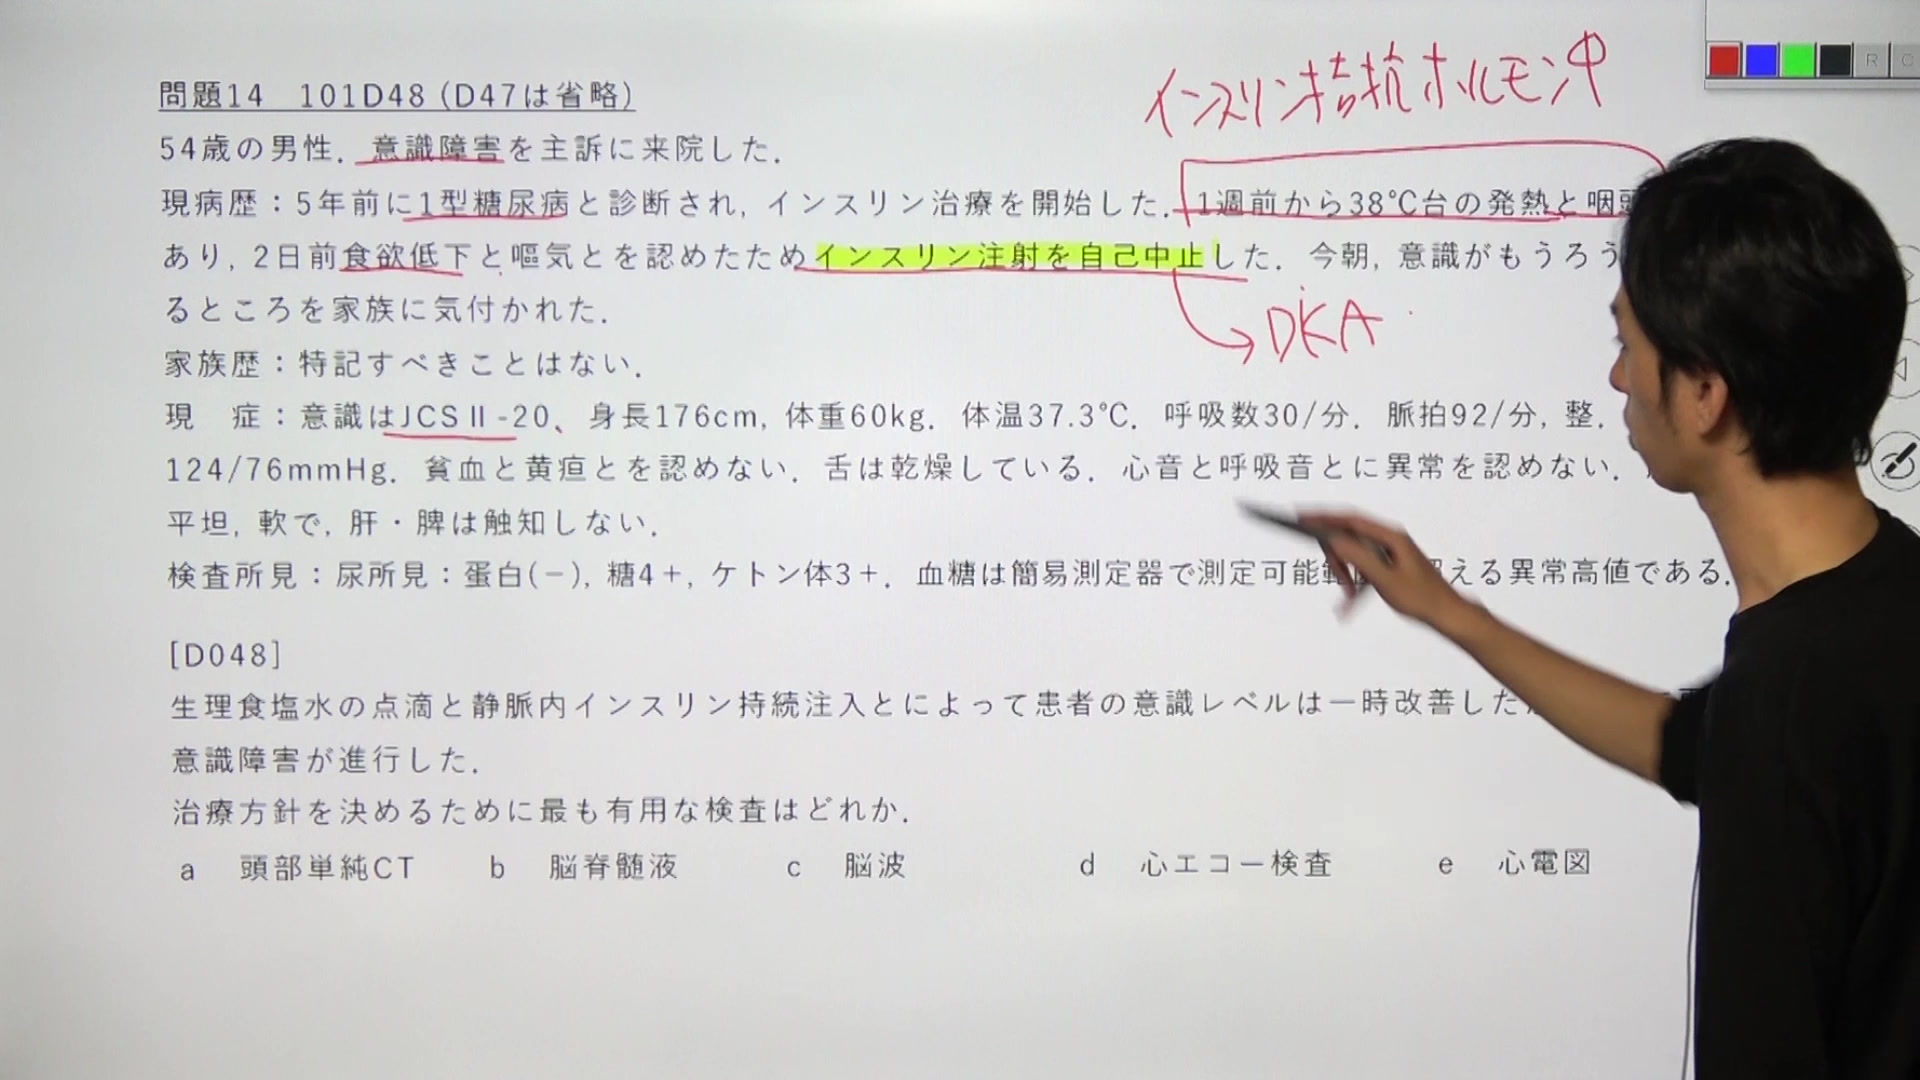 インスリン拮抗ホルモン↑
問題14 101D48 (D47は省略)
54歳の男性．意識障害を主訴に来院した．
現病歴：5年前に1型糖尿病と診断され, インスリン治療を開始した．1週前から38℃台の発熱と咽
あり, 2日前食欲低下と嘔気とを認めたためインスリン注射を自己中止した． 今朝, 意識がもうろう
るところを家族に気付かれた．
DKA
家族歴：特記すべきことはない．
現 症：意識はJCSⅡ-20、身長176cm, 体重60kg．体温37.3℃．呼吸数30/分．脈拍92/分, 整．
124/76mmHg．貧血と黄疸とを認めない．舌は乾燥している．心音と呼吸音とに異常を認めない．
平坦, 軟で, 肝・脾は触知しない．
検査所見：尿所見：蛋白(－), 糖4＋, ケトン体3＋．血糖は簡易測定器で測定可能 える異常高値である．
[D048]
生理食塩水の点滴と静脈内インスリン持続注入とによって患者の意識レベルは一時改善した
意識障害が進行した．
治療方針を決めるために最も有用な検査はどれか．
a 頭部単純CT b 脳脊髄液 c 脳波 d 心エコー検査 e 心電図
R